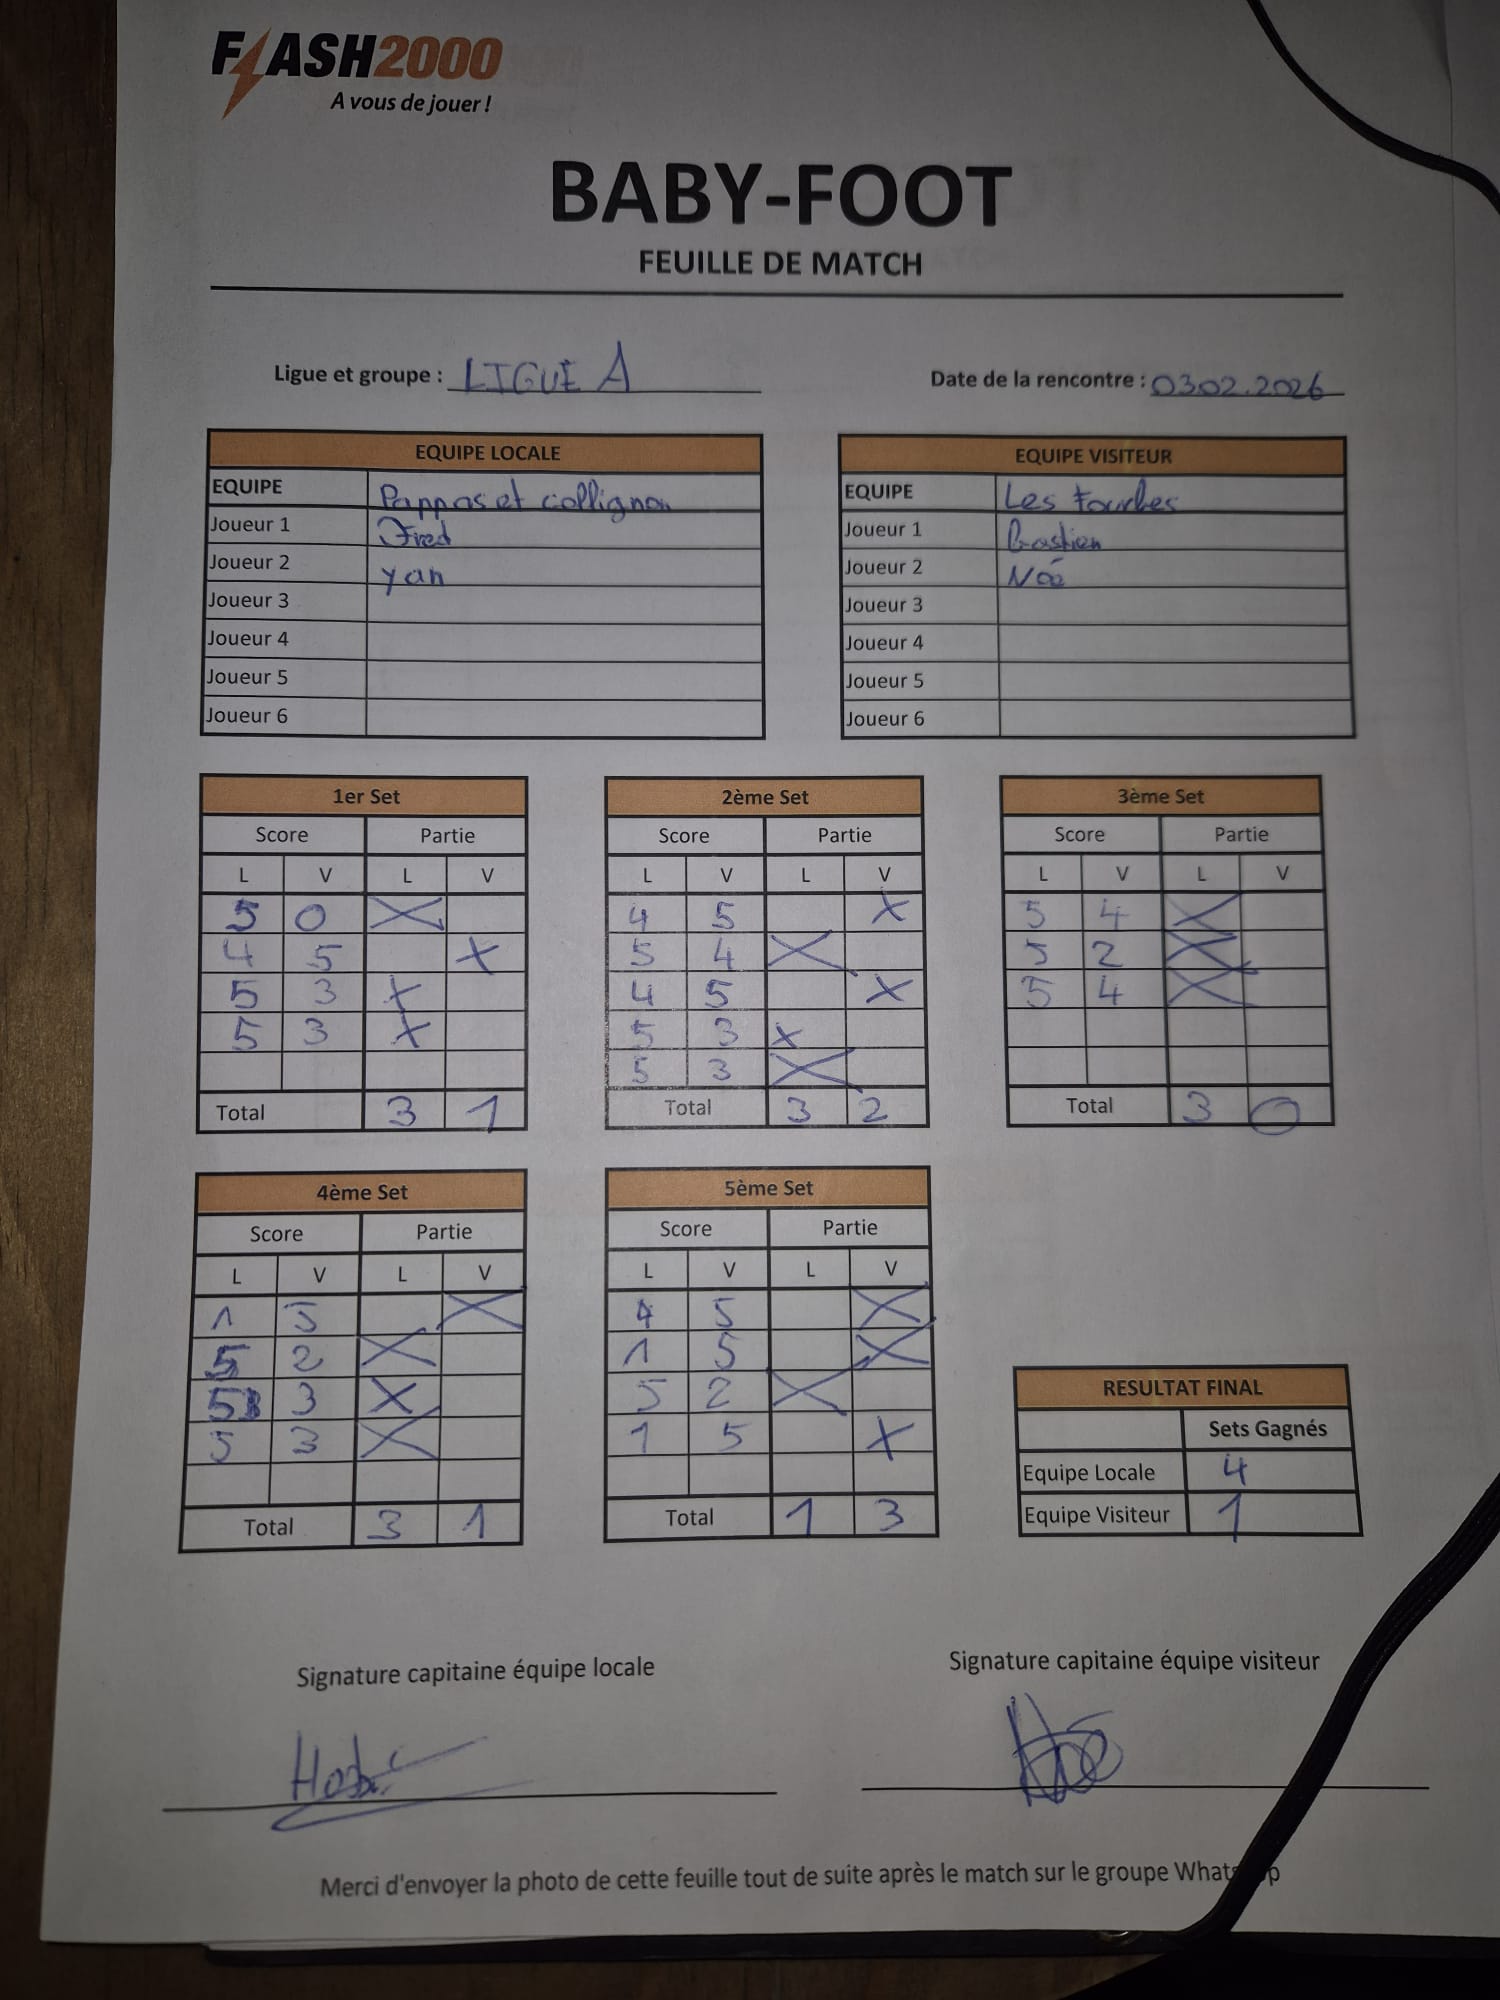 FLASH2000
A vous de jouer !
BABY-FOOT
FEUILLE DE MATCH
Ligue et groupe : LIGUE A
Date de la rencontre : 03.02.2026
EQUIPE LOCALE
EQUIPE Pappas et collignon
Joueur 1 Fred
Joueur 2 yan
Joueur 3
Joueur 4
Joueur 5
Joueur 6
EQUIPE VISITEUR
EQUIPE Les Fourbes
Joueur 1 Bastien
Joueur 2 Noé
Joueur 3
Joueur 4
Joueur 5
Joueur 6
1er Set
Score Partie
L V L V
5 0 X
4 5 X
5 3 X
5 3 X
Total 3 1
2ème Set
Score Partie
L V L V
4 5 X
5 4 X
4 5 X
5 3 X
5 3 X
Total 3 2
3ème Set
Score Partie
L V L V
5 4 X
5 2 X
5 4 X
Total 3 0
4ème Set
Score Partie
L V L V
1 5 X
5 2 X
5 3 X
5 3 X
Total 3 1
5ème Set
Score Partie
L V L V
4 5 X
1 5 X
5 2 X
1 5 X
Total 1 3
RESULTAT FINAL
Sets Gagnés
Equipe Locale 4
Equipe Visiteur 1
Signature capitaine équipe locale
Signature capitaine équipe visiteur
Merci d'envoyer la photo de cette feuille tout de suite après le match sur le groupe WhatsApp